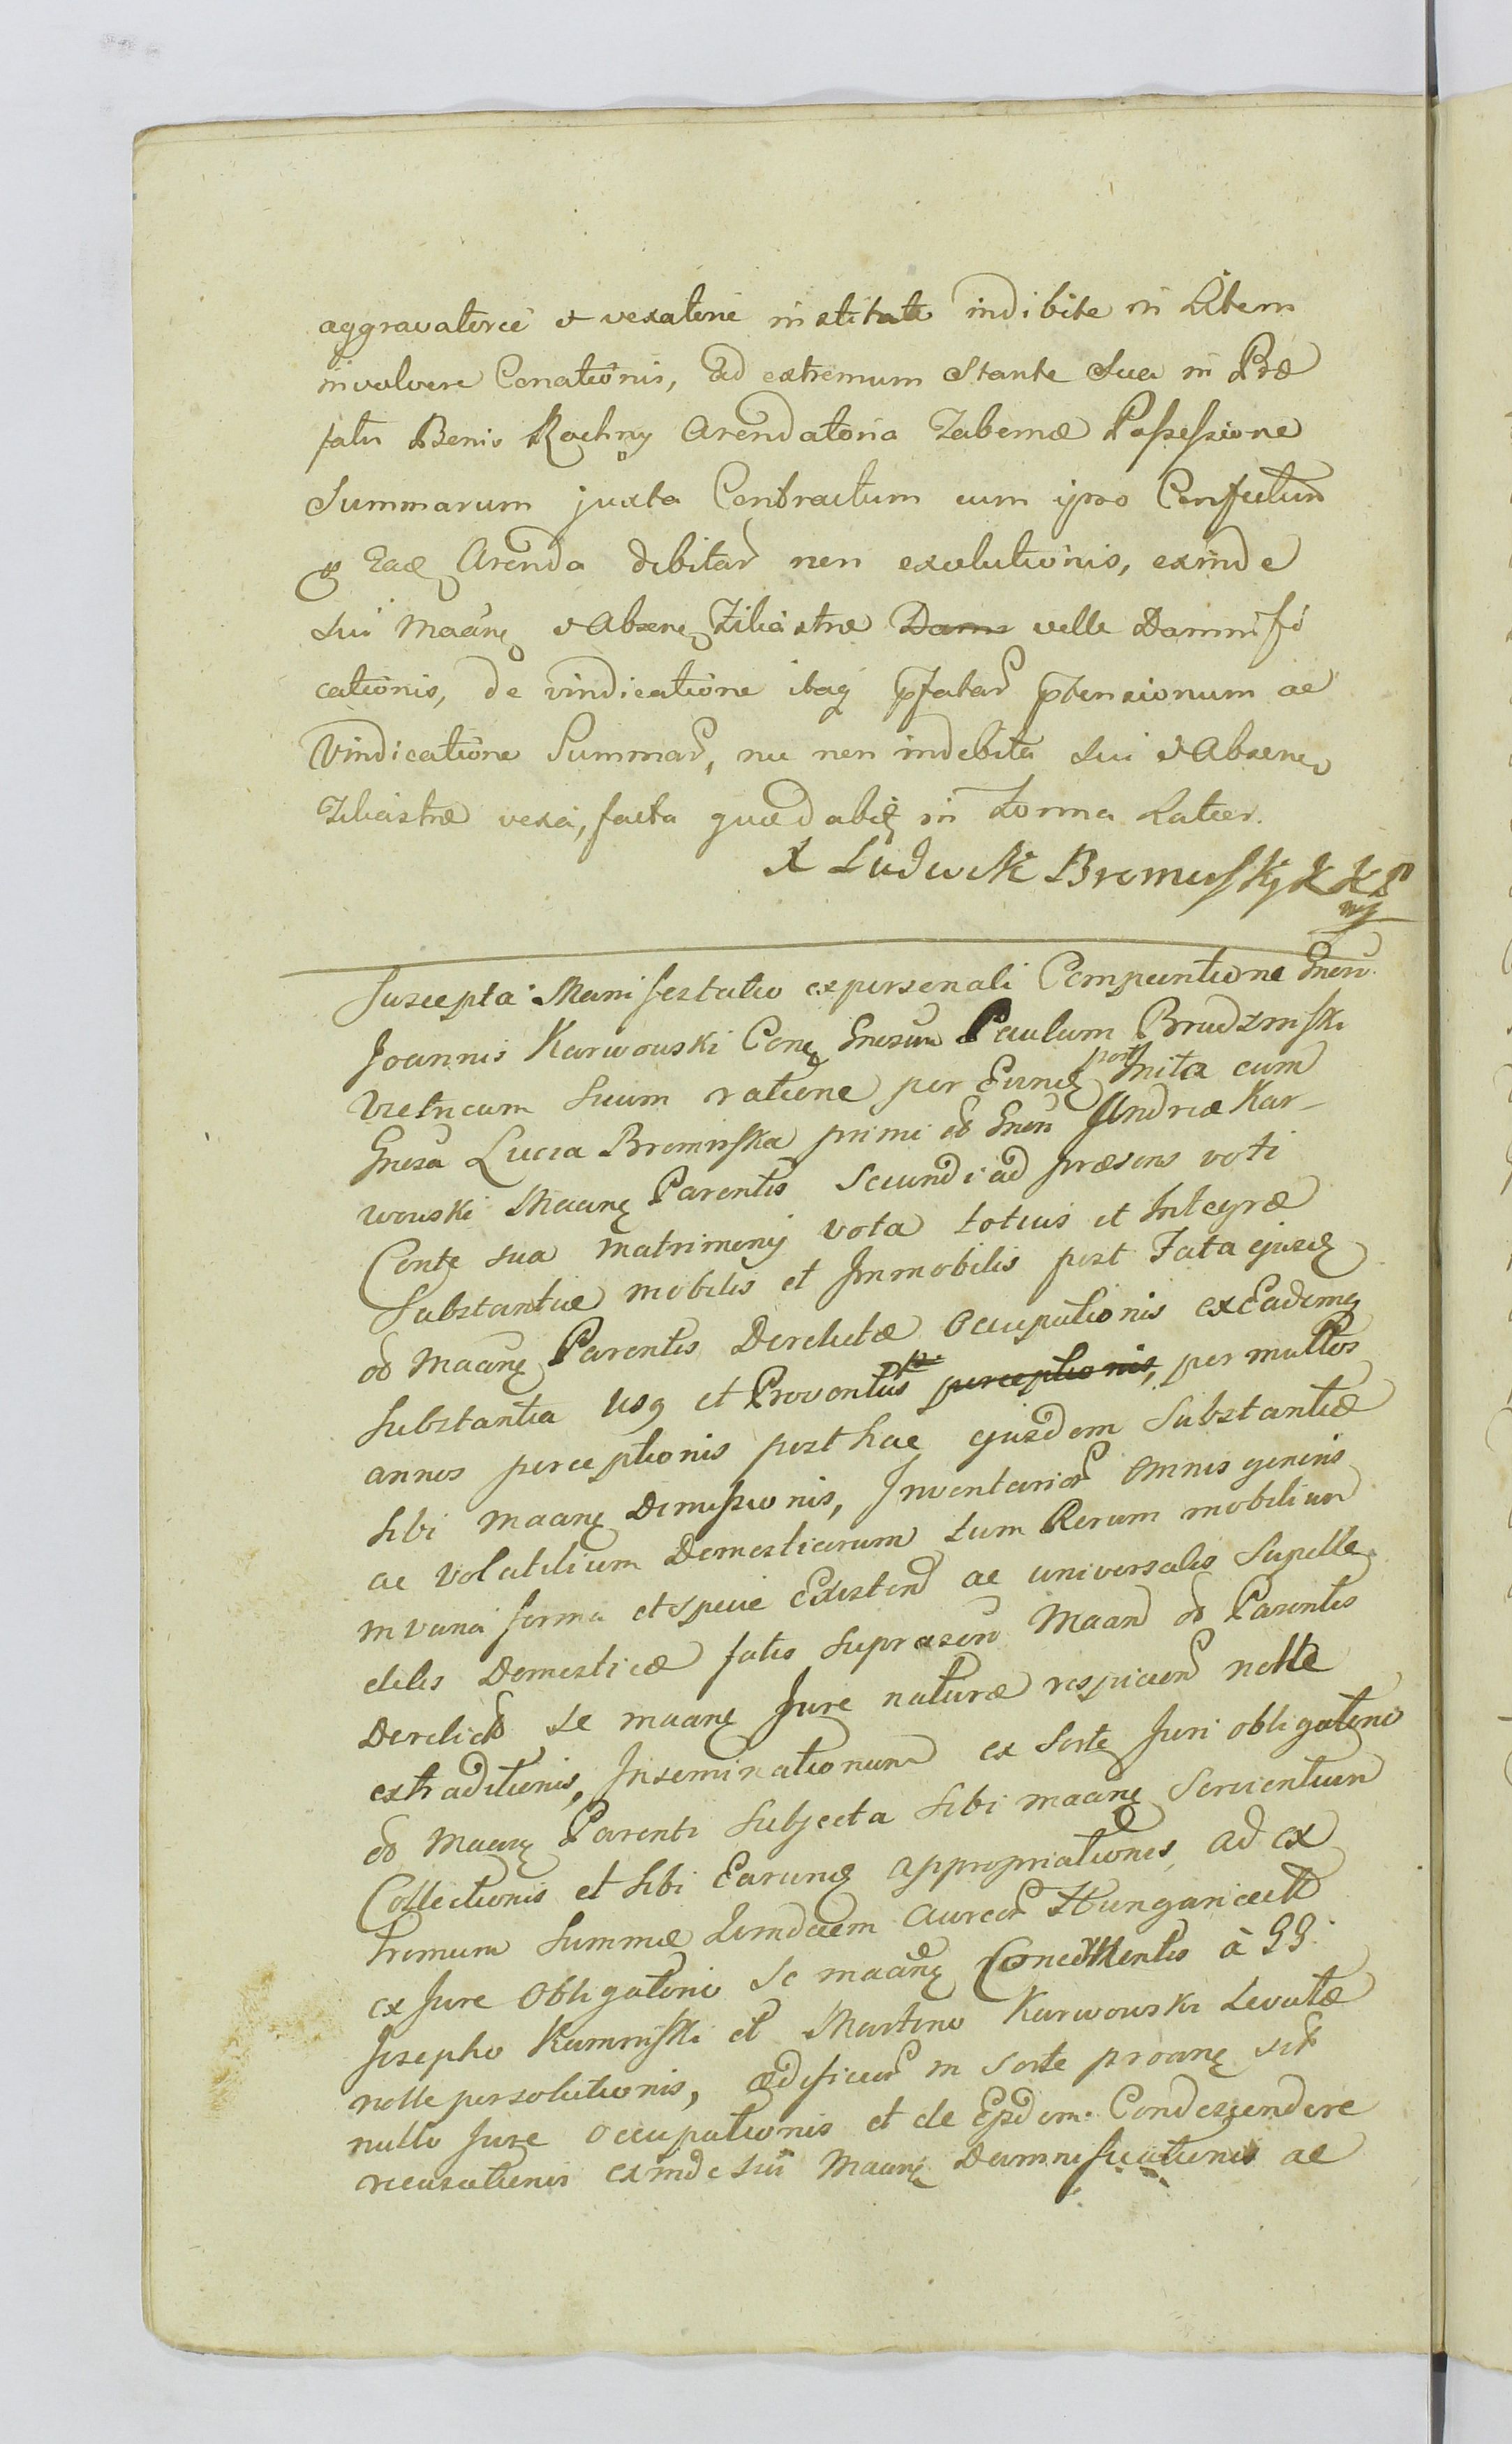 aggravatorie & vexatorie institate indibite in Litem
involvere Conationis, ad extremum Stante Sua in Præ
fatis Benis Rachny Arendatoria Tabernæ Possessione
Summarum juxta Contractum cum ipso Confectum
Arenda debitar non exolutionis, exinde
Sui Maang & Absene Filiastræ Dams velle Damnifi
cationis, de vindicatione itaq pfatar ptensionum ac
Vindicatione Summar, nec non indebita Sui & Absene
Filiastræ vexa, facta quæd abiq in Forma Latior.
X Ludwik Bromirski
Suscepta Manifestatio ex personali Compuntione Gnen
Joannis Karwowski Cong Gnosum Paulum Brudzinski
Vietricum Suum ratione per Eundq post Inita cum
Gnosa Lucia Bromirska primi oo Gnen Andreæ Kar-
wowski Maang Parentis Secundi ad præsens voti
Conte sua matrimony vota totius et Integræ
Substantiæ mobilis et Immobilis post Fata ejusdq
oo Maang Parentis Derelictæ Occupationis ex Eademq
Substantia Usq et Proventus p. perceptionis, per multos
annos perceptionis post hac ejusdem Substantiæ
Sibi Maang Demissionis, Inventarior Omnis generis
ac Volatilium Domesticarum tum Rerum mobilium
in varia forma et specie Existen ac universalis Supelle
ctilis Domesticæ fatis Suprascrn Maan oo Parentis
Derelict Se maang Jure naturæ respicien nolle
extraditionis, Inseminationum ex Sorte Juri obligatorio
oo Maang Parenti Subjecta Sibi maang Servientium
Collectionis et Sibi Earundq appropriationis, ad ex
tremum Summæ Aureor Hungaricall
ex Jure Obligatorio Se maang Concernentis à GG
Josepho Kaminski et Martino Karwowski Levatæ
nolle persolutionis, ædificior in Sorte proang sit
nullo Jure Occupationis et de Eisdem Condescendere
recusationis exinde sui Maang Damnificationis ac